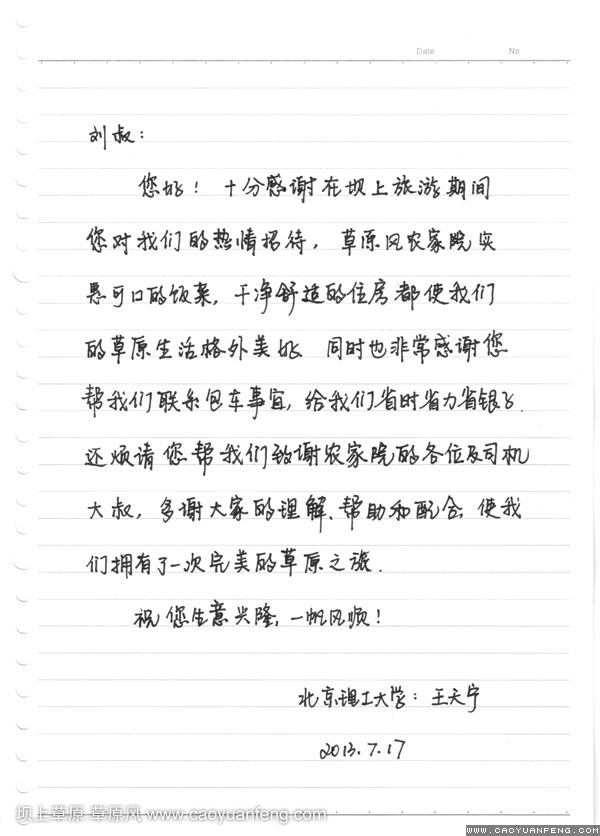 Date No
刘叔：
您好！十分感谢在坝上旅游期间
您对我们的热情招待，草原风农家院实
惠可口的饭菜，干净舒适的住房都使我们
的草原生活格外美好 同时也非常感谢您
帮我们联系包车事宜，给我们省时省力省银子.
还烦请您帮我们致谢农家院的各位及司机
大叔，多谢大家的理解、帮助和配合 使我
们拥有了一次完美的草原之旅.
祝您生意兴隆，一帆风顺！
北京理工大学：王天宁
2013.7.17
坝上草原 草原风 www.caoyuanfeng.com
WWW.CAOYUANFENG.COM